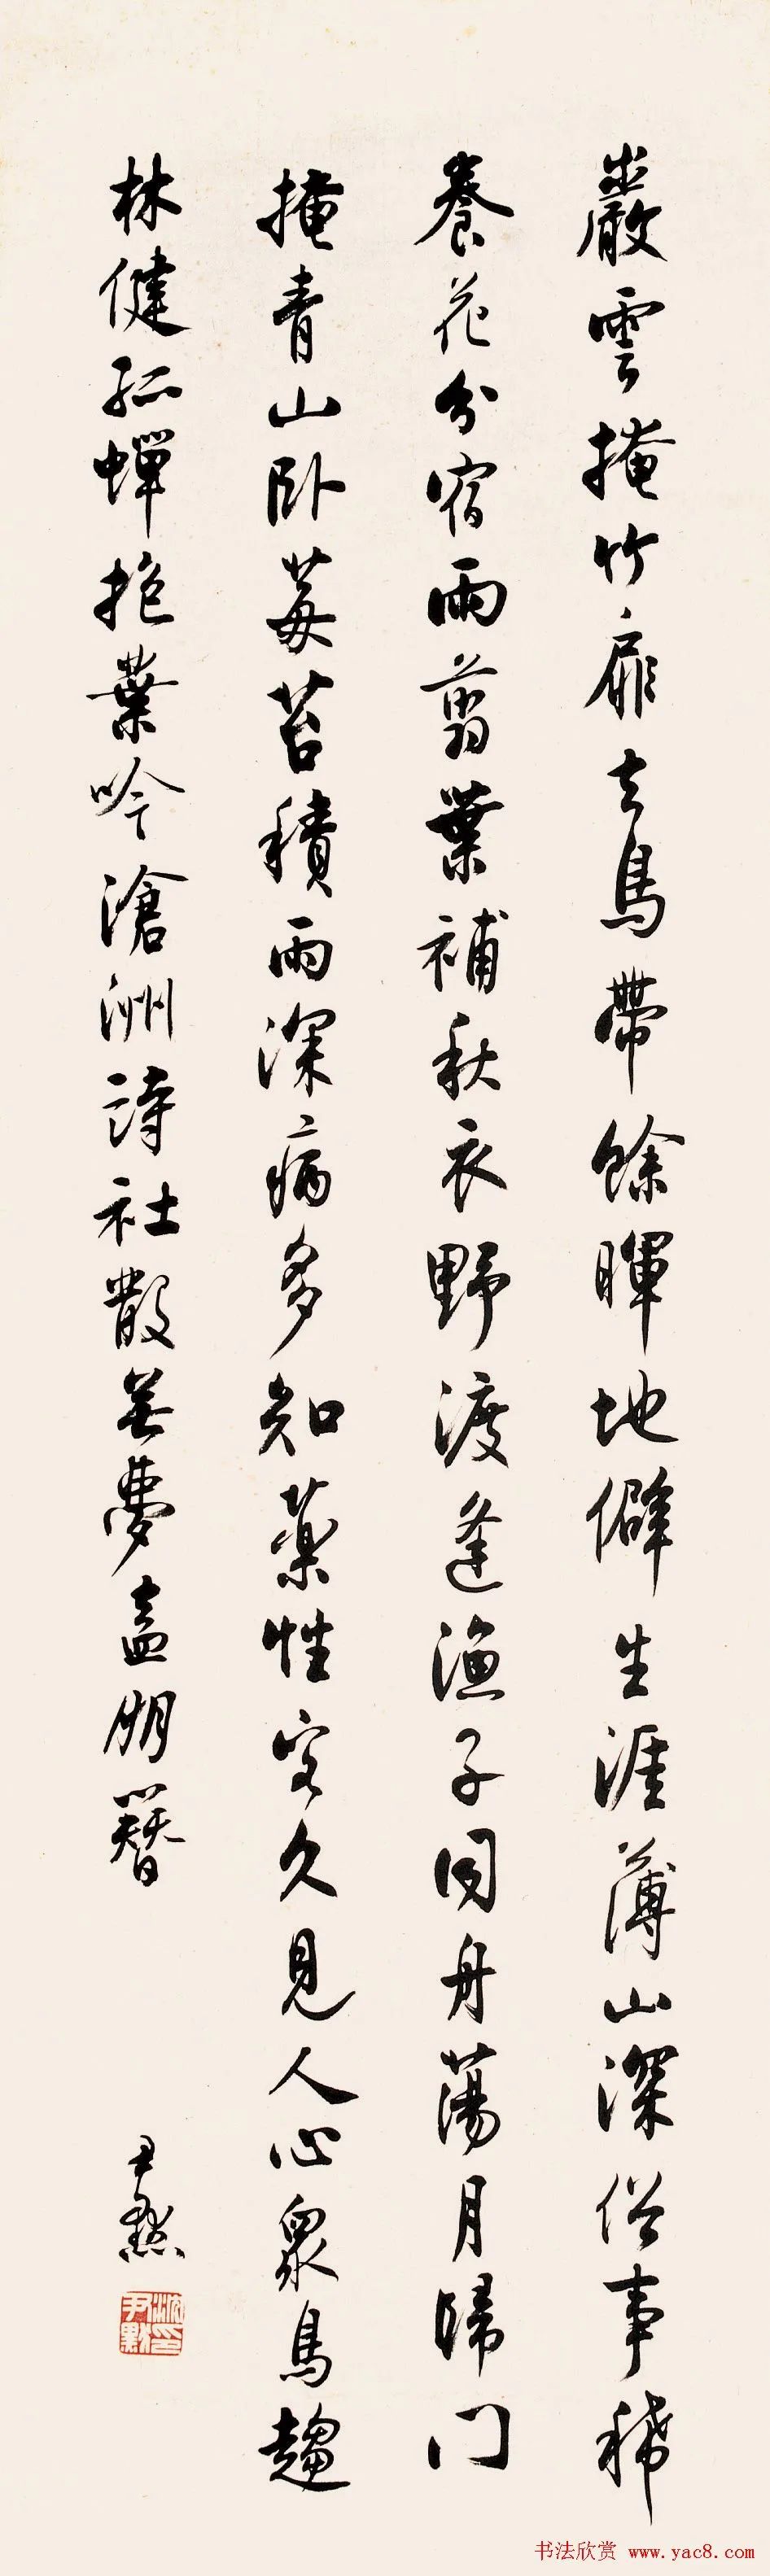 巖雲掩竹扉去鳥帶餘暉地僻生涯薄山深俗事稀
養花分宿雨翦葉補秋衣野渡逢漁子同舟蕩月歸门
掩青山卧莓苔積雨深病多知藥性客久見人心眾鳥趨
林健孤蟬抱葉吟滄洲詩社散無夢盍朋簪
尹默
沈尹默印
书法欣赏 www.yac8.com